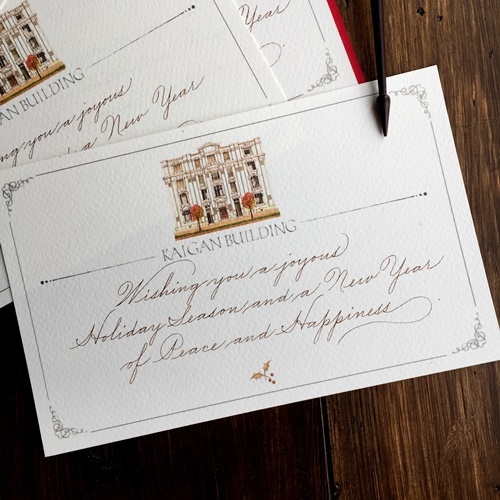 KAIGAN BUILDING
Wishing you a joyous
Holiday Season and a New Year
of Peace and Happiness
AN BUILDING
ng you a joyous
a New Year
Year